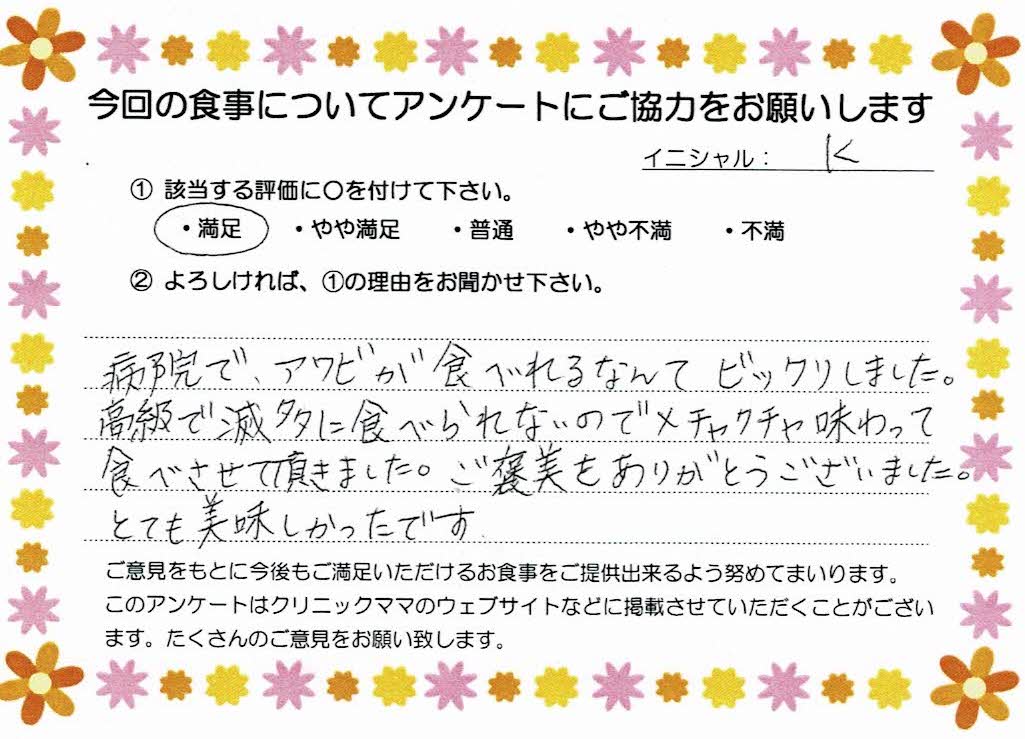 今回の食事についてアンケートにご協力をお願いします
イニシャル： K
① 該当する評価に〇を付けて下さい。
・満足 ・やや満足 ・普通 ・やや不満 ・不満
② よろしければ、①の理由をお聞かせ下さい。
病院で、アワビが食べれるなんて ビックリしました。
高級で滅多に食べられないのでメチャクチャ味わって
食べさせて頂きました。ご褒美をありがとうございました。
とても美味しかったです
ご意見をもとに今後もご満足いただけるお食事をご提供出来るよう努めてまいります。
このアンケートはクリニックママのウェブサイトなどに掲載させていただくことがござい
ます。たくさんのご意見をお願い致します。